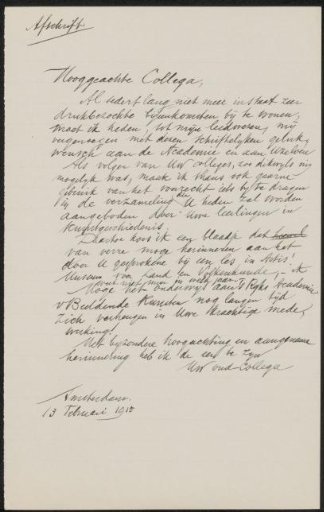 Afschrift
Hooggeachte Collega,
Al sedert lang niet meer in staat zeer
drukbezochte bijeenkomsten bij te wonen,
moet ik heden, tot mijn leedwezen, mij
vergenoegen met dezen schriftelijken geluk,
wensch aan de Academie en aan Uwelven
Als volger van Uw colleges, zoo dikwijls mij
mogelijk was, maak ik thans ook gaarne
gebruik van het voorrecht iets bij te dragen
bij de verhandeling U heden zal worden
aangeboden door Uwe leerlingen in
Kunstgeschiedenis.
Daartoe koos ik een blaadje dat
van verre moge herinneren aan het
door U gesprokene bij een les in Artis'
Museum van Land en Volkenkunde,
Moge Uw onderwijs aan 's Rijks Academie
v Beeldende Kunsten nog langen tijd
zich verheugen in Uwe krachtige mede,
werking!
Met bijzondere hoogachting en aangename
herinnering heb ik de eer te zijn
Uw oud-Collega
Amsterdam.
13 Februari